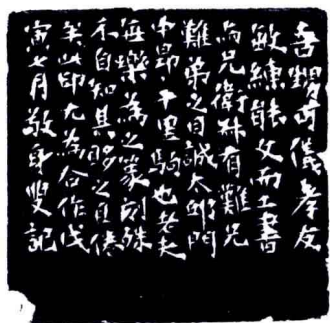 吾甥可儀孝友
敏練能文而工書
與兄衛林有難兄
難弟之目誠太邱門
中昂々千里駒也老夫
每樂為之篆刻殊
不自知其眵之且倦
矣此印尤為合作戊
寅七月敬身叟記